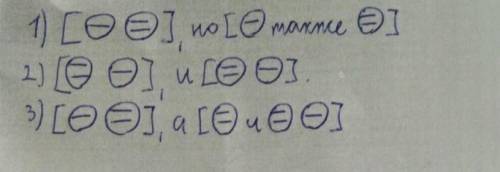 1) [⊖ ⊜], но [⊖ также ⊜]
2) [⊜ ⊖], и [⊜ ⊖].
3) [⊖ ⊜], а [⊖ и ⊜ ⊖]